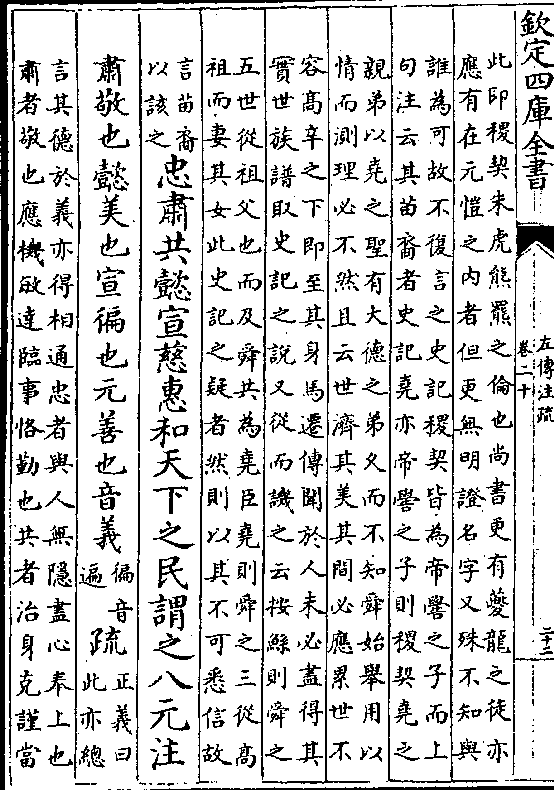 欽定四庫全書
左傳注疏
卷二十
二十三
此即稷契朱虎熊羆之倫也尚書更有夔龍之徒亦
應有在元愷之内者但更無明證名字又殊不知與
誰為可故不復言之史記稷契皆為帝嚳之子而上
句注云其苗裔者史記堯亦帝嚳之子則稷契堯之
親弟以堯之聖有大德之弟久而不知舜始舉用以
情而測理必不然且云世濟其美其間必應累世不
容髙辛之下即至其身馬遷傳聞於人未必盡得其
實世族譜取史記之說又從而譏之云按鯀則舜之
五世從祖父也而及舜共為堯臣堯則舜之三從髙
祖而妻其女此史記之疑者然則以其不可悉信故
言苗裔
以該之
忠肅共懿宣慈惠和天下之民謂之八元注
肅敬也懿美也宣徧也元善也音義
徧音
遍
疏
正義曰
此亦總
言其德於義亦得相通忠者與人無隱盡心奉上也
肅者敬也應機敏達臨事恪勤也共者治身克謹當